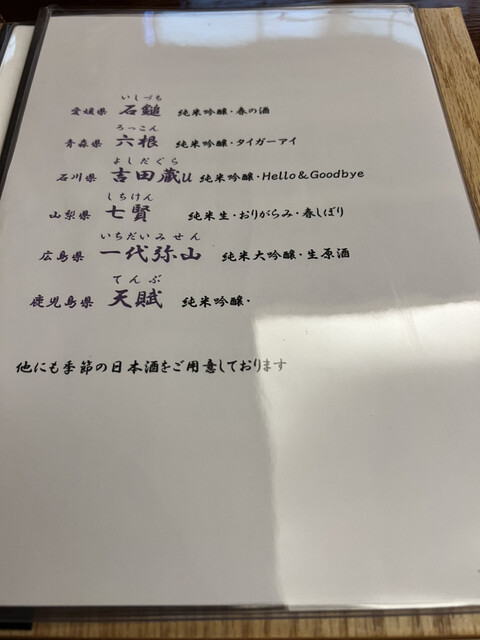 いしづち
愛媛県 石鎚 純米吟醸・春の酒
ろっこん
青森県 六根 純米吟醸・タイガーアイ
よしだぐら
石川県 吉田蔵u 純米吟醸・Hello&Goodbye
しちけん
山梨県 七賢 純米生・おりがらみ・春しぼり
いちだいみせん
広島県 一代弥山 純米大吟醸・生原酒
てんぶ
鹿児島県 天賦 純米吟醸・
他にも季節の日本酒をご用意しております